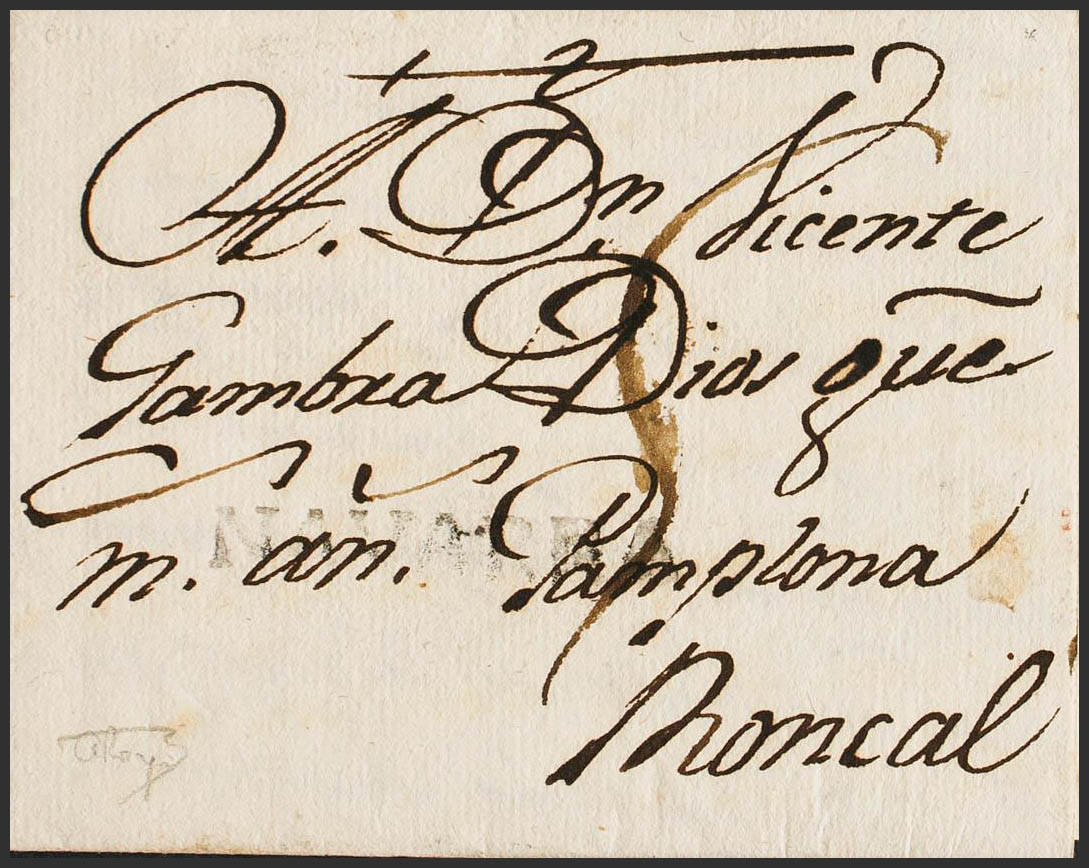 A. Dn. Vicente
Gambra Dios gue
m. an. Pamplona
NAVARRA
Roncal